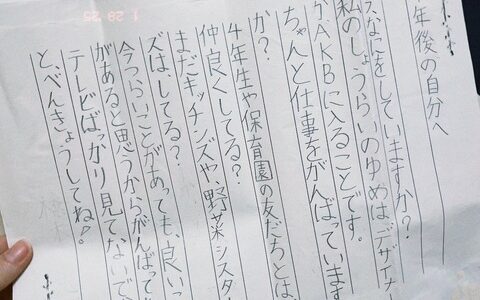 年後の自分へ
なにをしていますか?
私のしょうらいのゆめは、デザイナー
か、AKBに入ることです。
ちゃんと仕事をがんばっています
か?
4年生や保育園の友だちとは
仲良くしてる?
まだキッチンズや、野菜シスター
ズは、してる?
今つらいことがあっても、良いっ
があると思うからがんばって
テレビばっかり見てないで
と、べんきょうしてね♪。